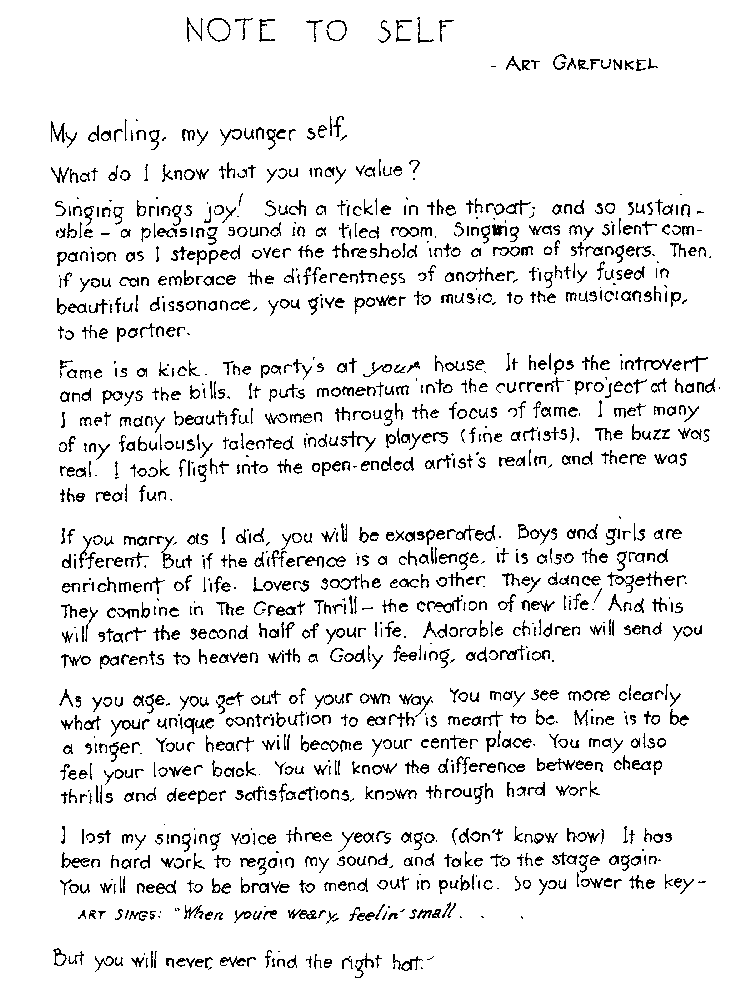 NOTE TO SELF
- ART GARFUNKEL
My darling, my younger self,
What do I know that you may value?
Singing brings joy! Such a tickle in the throat; and so sustain-
able – a pleasing sound in a tiled room. Singing was my silent com-
panion as I stepped over the threshold into a room of strangers. Then,
if you can embrace the differentness of another, tightly fused in
beautiful dissonance, you give power to music, to the musicianship,
to the partner.
Fame is a kick. The party's at your house. It helps the introvert
and pays the bills. It puts momentum into the current project at hand.
I met many beautiful women through the focus of fame. I met many
of my fabulously talented industry players (fine artists). The buzz was
real. I took flight into the open-ended artist's realm, and there was
the real fun.
If you marry, as I did, you will be exasperated. Boys and girls are
different. But if the difference is a challenge, it is also the grand
enrichment of life. Lovers soothe each other. They dance together.
They combine in The Great Thrill – the creation of new life! And this
will start the second half of your life. Adorable children will send you
two parents to heaven with a Godly feeling, adoration.
As you age, you get out of your own way. You may see more clearly
what your unique contribution to earth is meant to be. Mine is to be
a singer. Your heart will become your center place. You may also
feel your lower back. You will know the difference between cheap
thrills and deeper satisfactions, known through hard work
I lost my singing voice three years ago. (don't know how) It has
been hard work to regain my sound, and take to the stage again.
You will need to be brave to mend out in public. So you lower the key –
ART SINGS: "When you're weary, feelin' small. . .
But you will never, ever find the right hat."